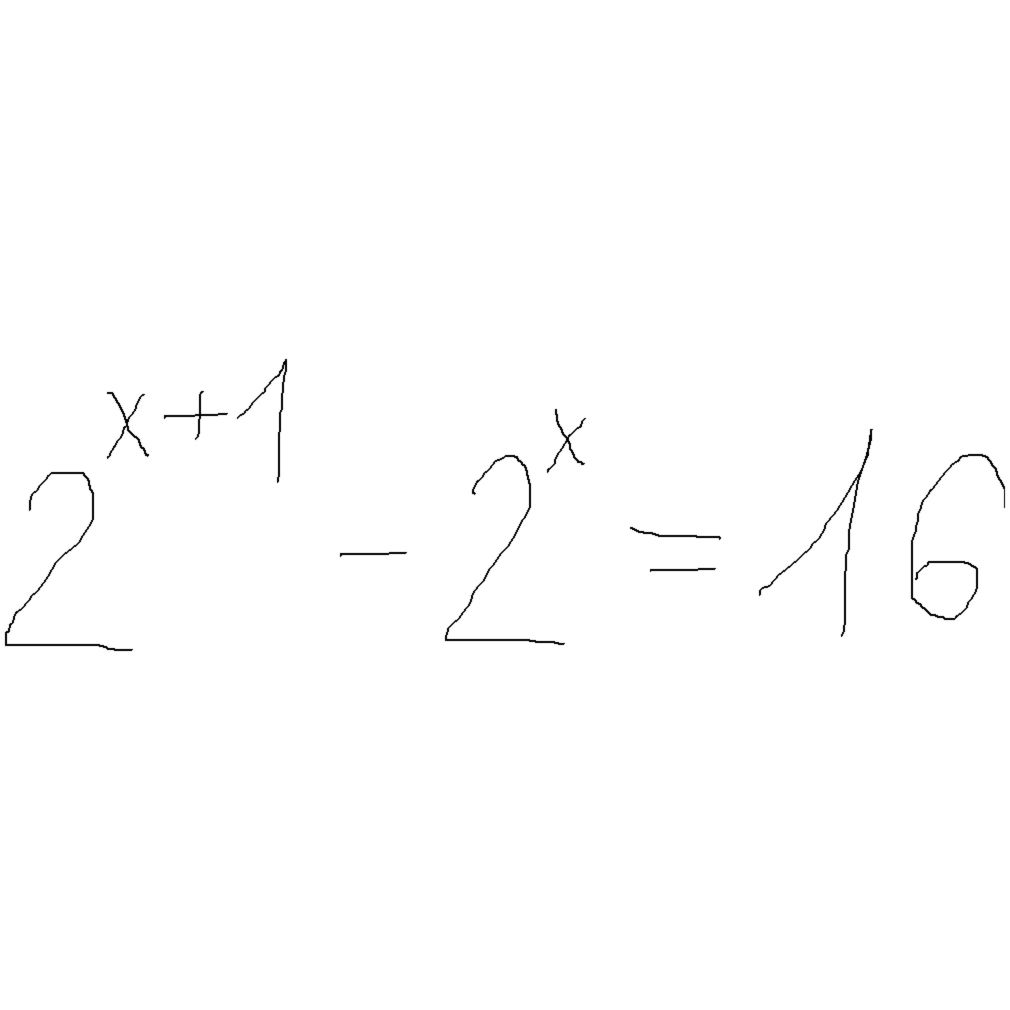 2^{x+1} - 2^x = 16